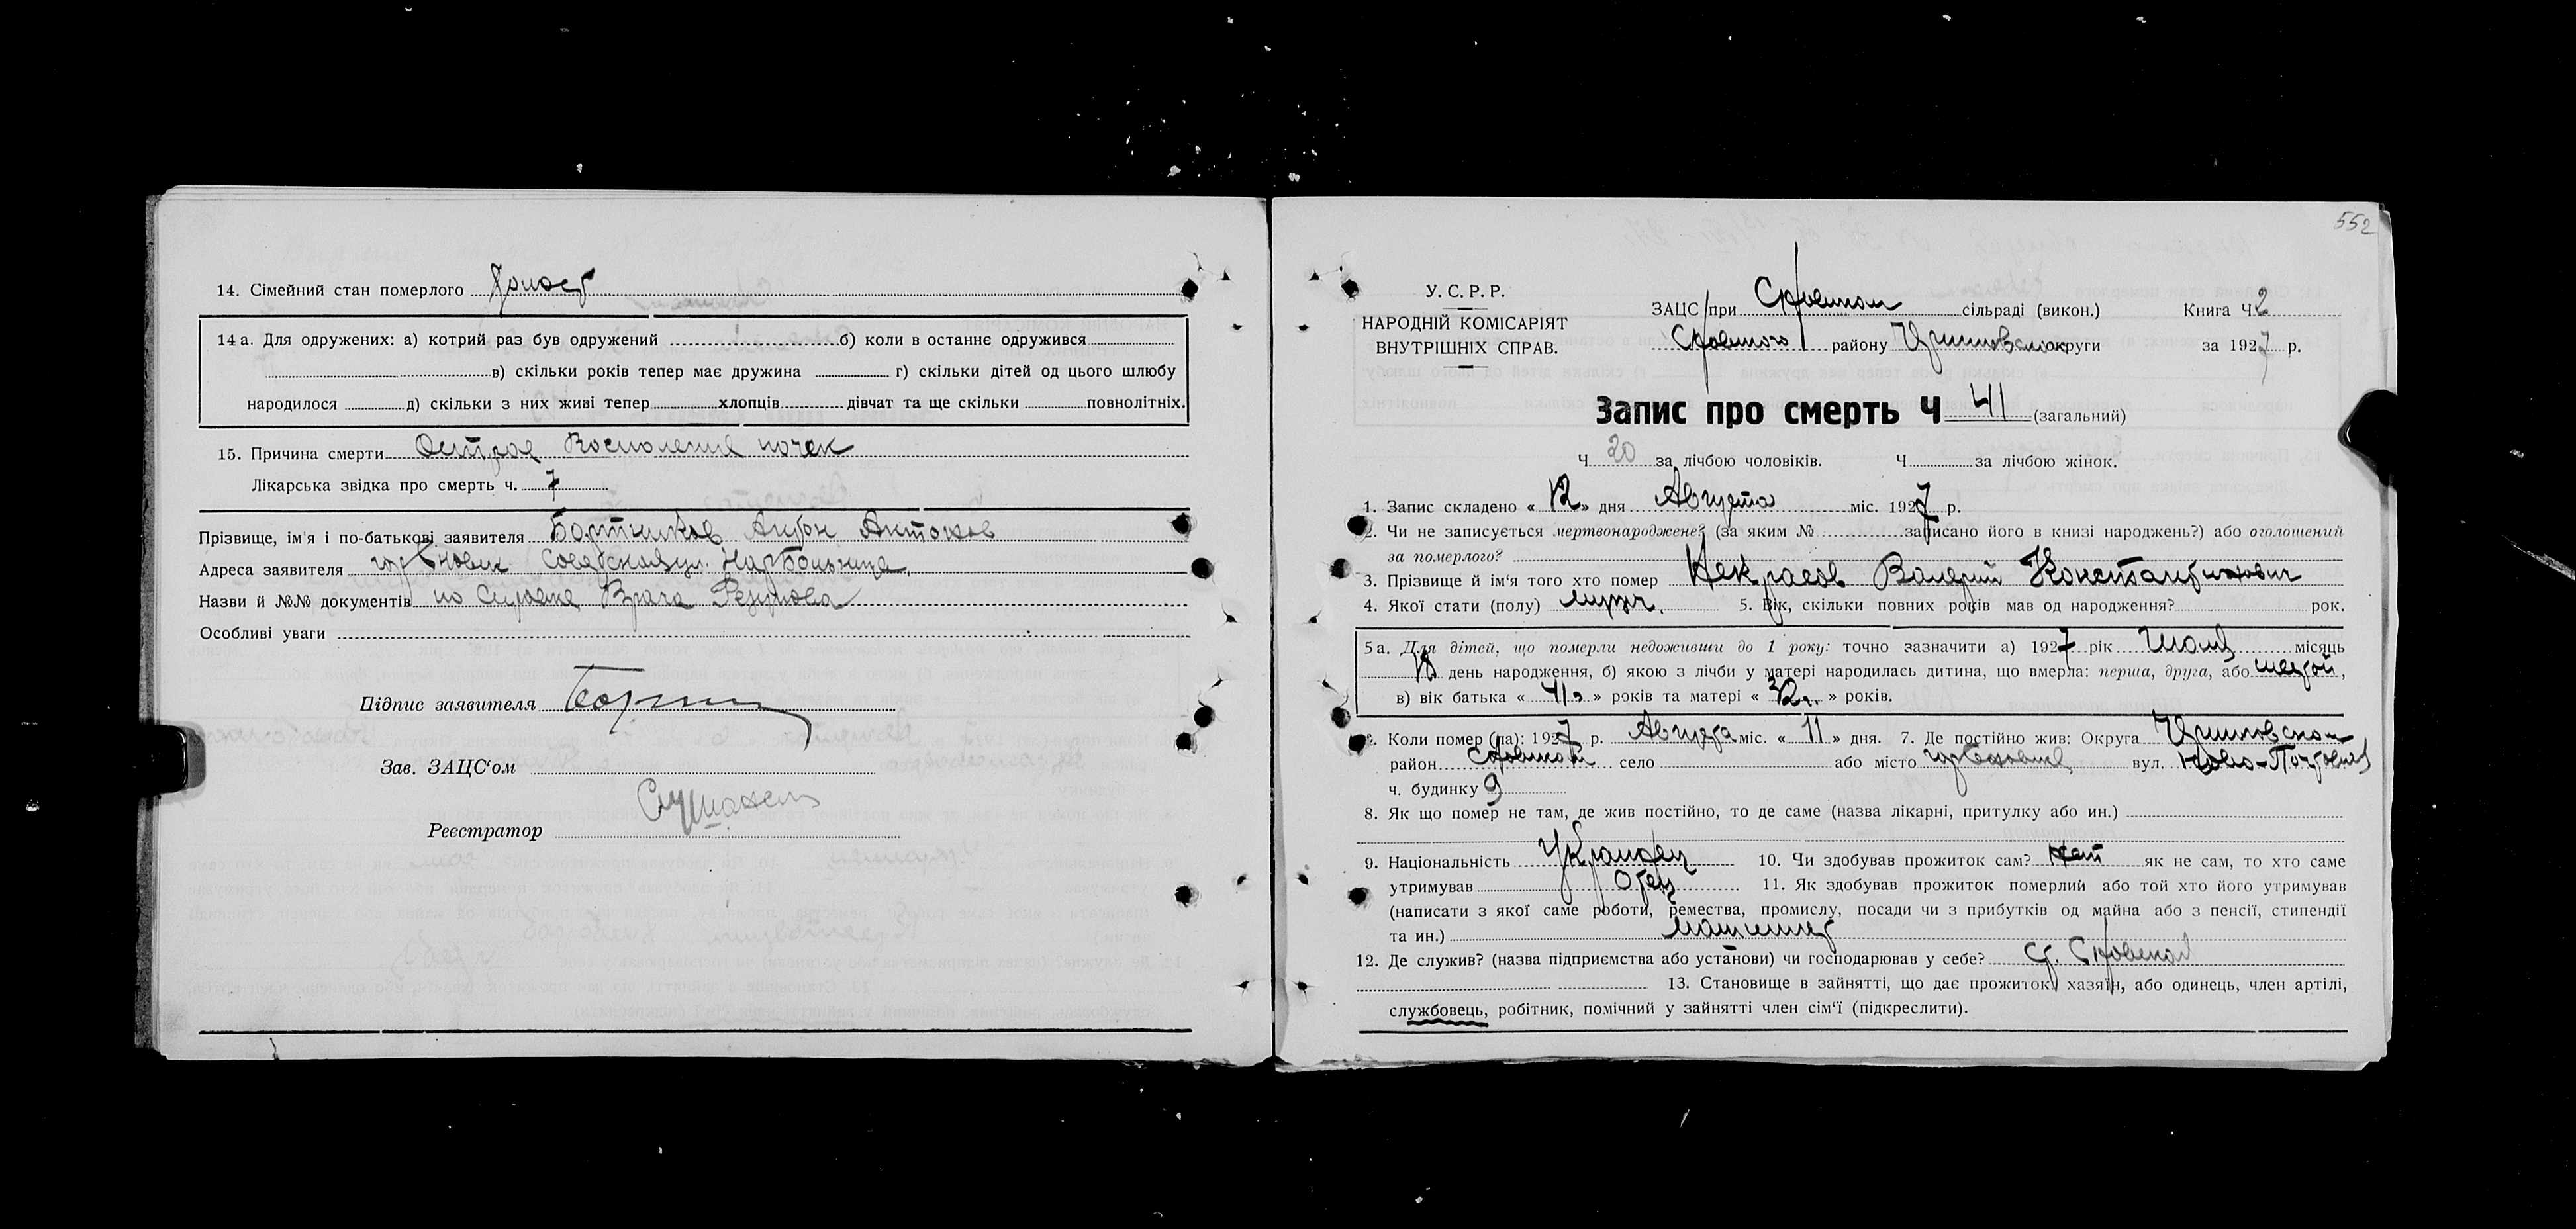 14. Сімейний стан померлого Холост
14 а. Для одружених: а) котрий раз був одружений б) коли в останнє одружився
в) скільки років тепер має дружина г) скільки дітей од цього шлюбу
народилося д) скільки з них живі тепер хлопців дівчат та ще скільки повнолітніх.
15. Причина смерти Острое Восполение почек
Лікарська звідка про смерть ч. 7
Прізвище, ім'я і по-батькові заявителя Бортников Антон Антонов
Адреса заявителя ул. Нарбольница
Назви й №№ документів по Врача
Особливі уваги
Підпис заявителя
Зав. ЗАЦС'ом
Реєстратор
552
У. С. Р. Р.
НАРОДНІЙ КОМІСАРІЯТ
ВНУТРІШНІХ СПРАВ.
ЗАЦС при сільраді (викон.) Книга Ч 2
району округи за 1927 р.
Запис про смерть Ч 41 (загальний)
Ч 20 за лічбою чоловіків. Ч за лічбою жінок.
1. Запис складено « 12 » дня Августа міс. 1927 р.
2. Чи не записується мертвонароджене? (за яким № записано його в книзі народжень?) або оголошений
за померлого?
3. Прізвище й ім'я того хто помер Некрасов Валерий Константинович
4. Якої стати (полу) мужч. 5. Вік, скільки повних років мав од народження? рок.
5 а. Для дітей, що померли недоживши до 1 року: точно зазначити а) 1927 рік місяць
день народження, б) якою з лічби у матері народилась дитина, що вмерла: перша, друга, або шестой,
в) вік батька « » років та матері « » років.
6. Коли помер (ла): 1927 р. Августа міс. « 11 » дня. 7. Де постійно жив: Округа
район село або місто вул.
ч. будинку 9
8. Як що помер не там, де жив постійно, то де саме (назва лікарні, притулку або ин.)
9. Національність Украинец 10. Чи здобував прожиток сам? нет як не сам, то хто саме
утримував Отец 11. Як здобував прожиток померлий або той хто його утримував
(написати з якої саме роботи, ремества, промислу, посади чи з прибутків од майна або з пенсії, стипендії
та ин.)
12. Де служив? (назва підприємства або установи) чи господарював у себе?
13. Становище в зайнятті, що дає прожиток хазяїн, або одинець, член артілі,
службовець, робітник, помічний у зайнятті член сім'ї (підкреслити).